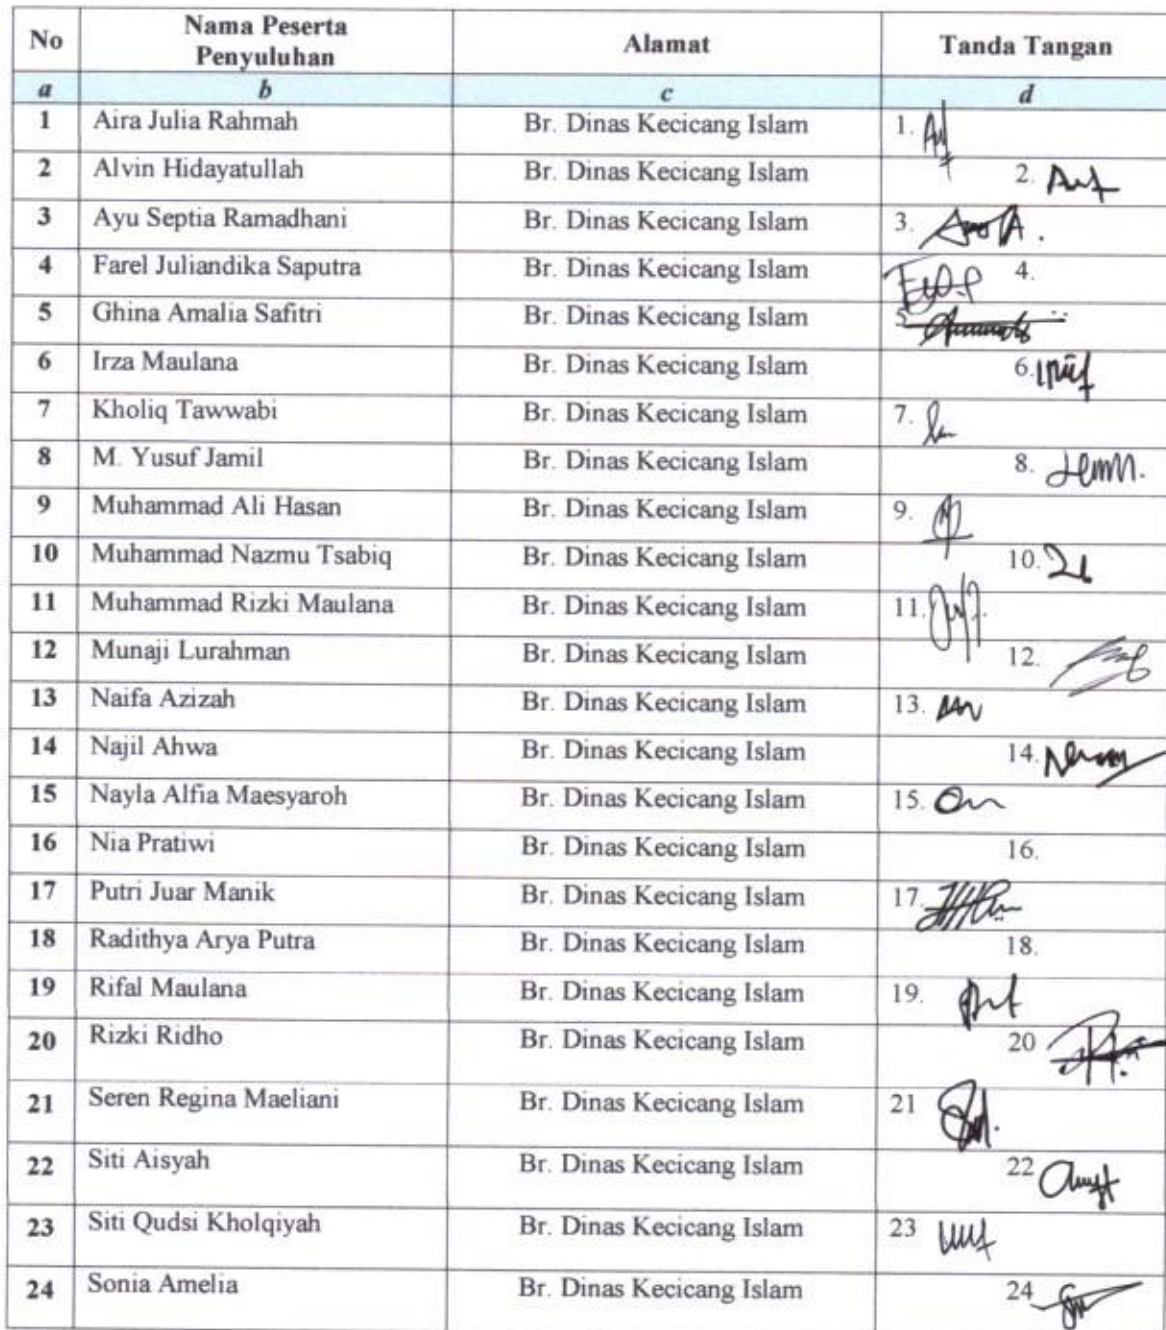 No Nama Peserta Alamat Tanda Tangan
Penyuluhan
a b c d
1 Aira Julia Rahmah Br. Dinas Kecicang Islam 1.
2 Alvin Hidayatullah Br. Dinas Kecicang Islam 2.
3 Ayu Septia Ramadhani Br. Dinas Kecicang Islam 3.
4 Farel Juliandika Saputra Br. Dinas Kecicang Islam 4.
5 Ghina Amalia Safitri Br. Dinas Kecicang Islam 5.
6 Irza Maulana Br. Dinas Kecicang Islam 6.
7 Kholiq Tawwabi Br. Dinas Kecicang Islam 7.
8 M. Yusuf Jamil Br. Dinas Kecicang Islam 8.
9 Muhammad Ali Hasan Br. Dinas Kecicang Islam 9.
10 Muhammad Nazmu Tsabiq Br. Dinas Kecicang Islam 10.
11 Muhammad Rizki Maulana Br. Dinas Kecicang Islam 11.
12 Munaji Lurahman Br. Dinas Kecicang Islam 12.
13 Naifa Azizah Br. Dinas Kecicang Islam 13.
14 Najil Ahwa Br. Dinas Kecicang Islam 14.
15 Nayla Alfia Maesyaroh Br. Dinas Kecicang Islam 15.
16 Nia Pratiwi Br. Dinas Kecicang Islam 16.
17 Putri Juar Manik Br. Dinas Kecicang Islam 17.
18 Radithya Arya Putra Br. Dinas Kecicang Islam 18.
19 Rifal Maulana Br. Dinas Kecicang Islam 19.
20 Rizki Ridho Br. Dinas Kecicang Islam 20
21 Seren Regina Maeliani Br. Dinas Kecicang Islam 21
22 Siti Aisyah Br. Dinas Kecicang Islam 22
23 Siti Qudsi Kholqiyah Br. Dinas Kecicang Islam 23
24 Sonia Amelia Br. Dinas Kecicang Islam 24